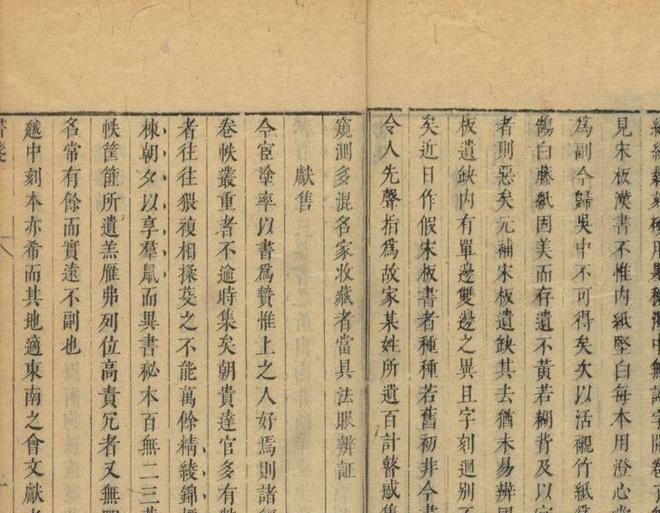 見宋板漢書不惟内紙堅白每本用澄心堂
爲副今歸吳中不可得矣次以活襯竹紙爲
鵠白藤紙固美而存遺不黄若糊背及以官
者則惡矣元補宋板遺缺其去猶未易辨
板遺缺内有單邊雙邊之異且字刻迥别
矣近日作假宋板書者種種若舊初非今書
令人先聲指爲故家某姓所遺百計瞽惑售
窺測多混名家收藏者當具法眼辨証
獻售
今宦塗率以書爲贄惟上之人好焉則諸
卷帙叢重者不逾時集矣朝貴達官多有數
者往往猥複相揉芟之不能萬餘精綾錦標
棟朝夕以享羣鼠而異書秘本百無二三蓋
帙筐篚所遺羔雁弗列位高責冗者又無暇
名常有餘而實遠不副也
越中刻本亦希而其地適東南之會文獻之